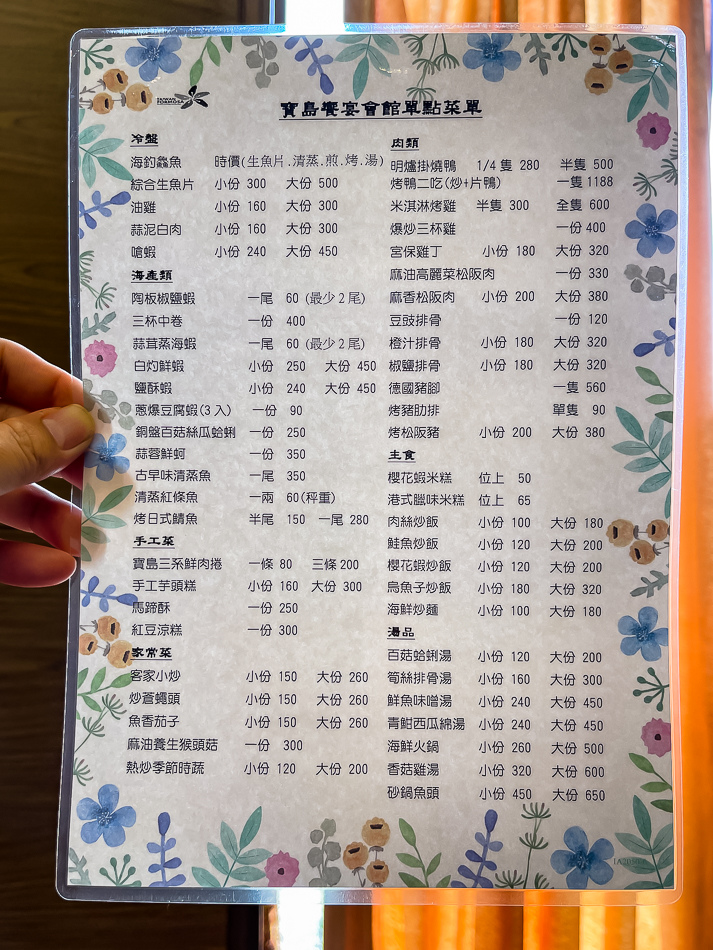 TAIWAN
FORMOSA
寶島饗宴會館單點菜單
冷盤
海釣鱻魚 時價(生魚片.清蒸.煎.烤.湯)
綜合生魚片 小份 300 大份 500
油雞 小份 160 大份 300
蒜泥白肉 小份 160 大份 300
嗆蝦 小份 240 大份 450
海產類
陶板椒鹽蝦 一尾 60 (最少 2 尾)
三杯中卷 一份 400
蒜茸蒸海蝦 一尾 60 (最少 2 尾)
白灼鮮蝦 小份 250 大份 450
鹽酥蝦 小份 240 大份 450
蔥爆豆腐蝦(3 入) 一份 90
銅盤百菇絲瓜蛤蜊 一份 250
蒜蓉鮮蚵 一份 350
古早味清蒸魚 一尾 350
清蒸紅條魚 一兩 60(秤重)
烤日式鯖魚 半尾 150 一尾 280
手工菜
寶島三系鮮肉捲 一條 80 三條 200
手工芋頭糕 小份 160 大份 300
馬蹄酥 一份 250
紅豆涼糕 一份 300
家常菜
客家小炒 小份 150 大份 260
炒蒼蠅頭 小份 150 大份 260
魚香茄子 小份 150 大份 260
麻油養生猴頭菇 一份 300
熱炒季節時蔬 小份 120 大份 200
肉類
明爐掛燒鴨 1/4 隻 280 半隻 500
烤鴨二吃(炒+片鴨) 一隻 1188
米淋淋烤雞 半隻 300 全隻 600
爆炒三杯雞 一份 400
宮保雞丁 小份 180 大份 320
麻油高麗菜松阪肉 一份 330
麻香松阪肉 小份 200 大份 380
豆豉排骨 一份 120
橙汁排骨 小份 180 大份 320
椒鹽排骨 小份 180 大份 320
德國豬腳 一隻 560
烤豬肋排 單隻 90
烤松阪豬 小份 200 大份 380
主食
櫻花蝦米糕 位上 50
港式臘味米糕 位上 65
肉絲炒飯 小份 100 大份 180
鮭魚炒飯 小份 120 大份 200
櫻花蝦炒飯 小份 120 大份 200
烏魚子炒飯 小份 180 大份 320
海鮮炒麵 小份 100 大份 180
湯品
百菇蛤蜊湯 小份 120 大份 200
筍絲排骨湯 小份 160 大份 300
鮮魚味噌湯 小份 240 大份 450
青魽西瓜綿湯 小份 240 大份 450
海鮮火鍋 小份 260 大份 500
香菇雞湯 小份 320 大份 600
砂鍋魚頭 小份 450 大份 650